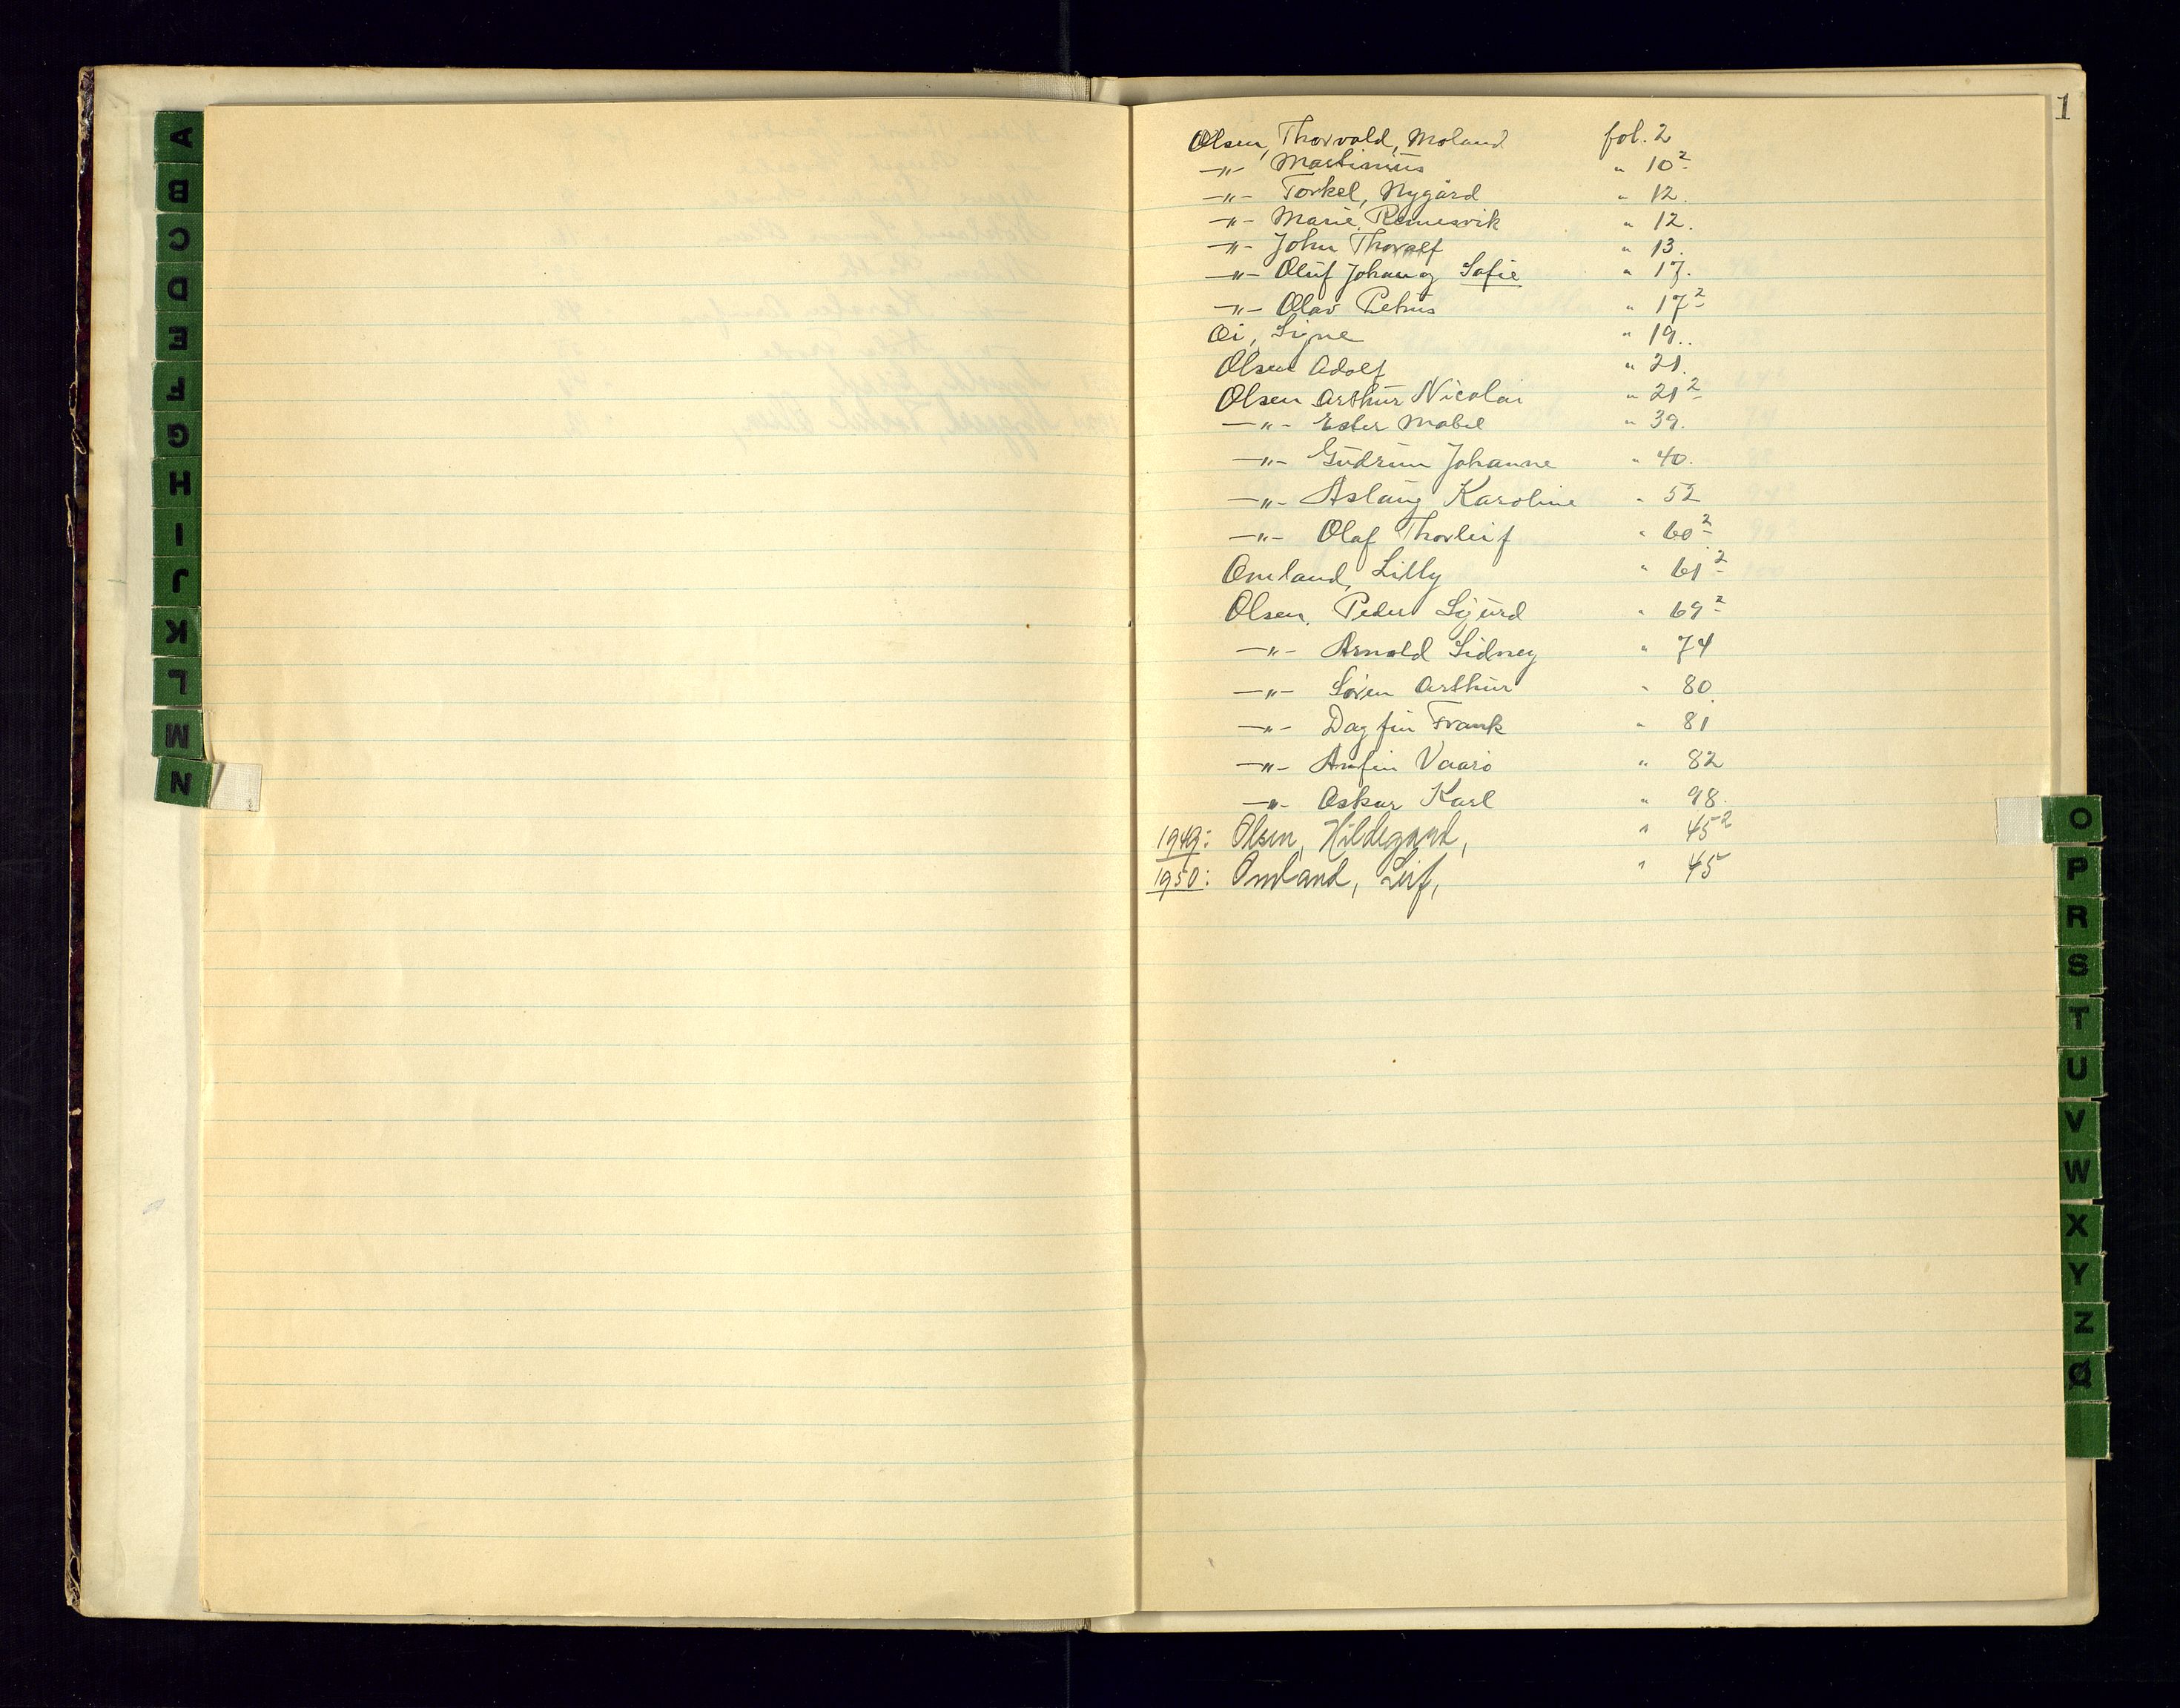 A
B
C
D
E
F
G
H
I
J
K
L
M
N
1
Olsen, Thorvald, Moland fol. 2
—"— Martinius " 10²
—"— Torkel, Nygård " 12.
—"— Marie, Remesvik " 12.
—"— John Thoralf " 13.
—"— Oluf Johan og Sofie " 17.
—"— Olav Petrus " 17²
Oi, Signe " 19..
Olsen Adolf " 21.
Olsen Arthur Nicolai " 21²
—"— Ester Mabel " 39.
—"— Gudrun Johanne " 40.
—"— Aslaug Karoline " 52
—"— Olaf Thorleif " 60²
Omland, Lilly " 61²
Olsen, Peder Sigurd " 69²
—"— Arnold Sidney " 74
—"— Søren Arthur " 80
—"— Dagfin Frank " 81
—"— Arnfin Vaarø " 82
—"— Oskar Karl " 98.
1949: Olsen, Hildegard, " 45²
1950: Omland, Leif, " 45
O
P
R
S
T
U
V
W
X
Y
Z
Ø